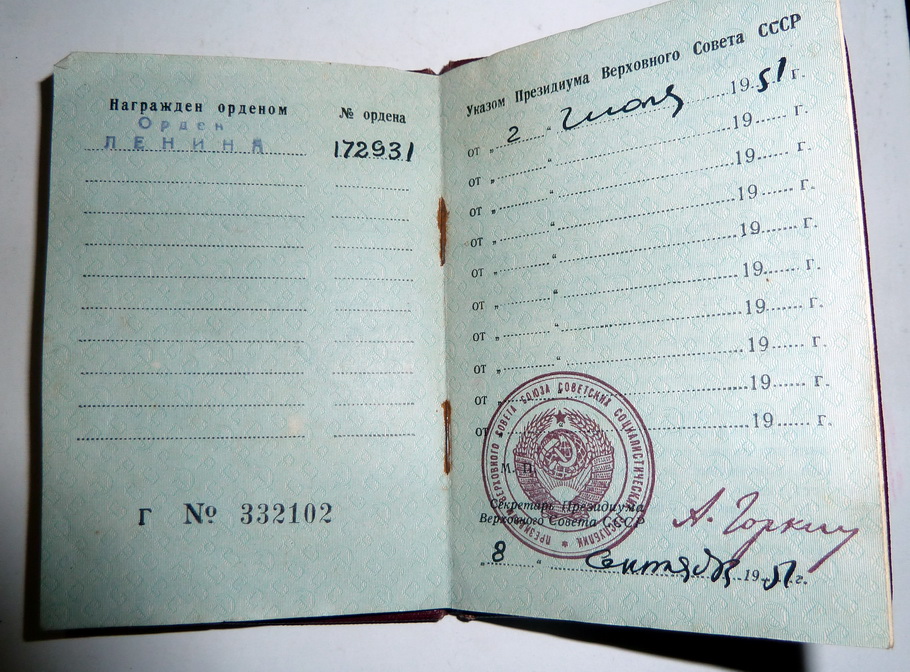 Награжден орденом № ордена
Орден
ЛЕНИНА 172931
Г № 332102
Указом Президиума Верховного Совета СССР
от „ 2 “ июля 1951 г.
от „ “ 19 г.
от „ “ 19 г.
от „ “ 19 г.
от „ “ 19 г.
от „ “ 19 г.
от „ “ 19 г.
от „ “ 19 г.
от „ 19 г.
от 19 г.
ПРЕЗИДИУМ ВЕРХОВНОГО СОВЕТА СОЮЗА СОВЕТСКИХ СОЦИАЛИСТИЧЕСКИХ РЕСПУБЛИК
М. П.
Секретарь Президиума
Верховного Совета СССР
А. Горкин
„ 8 “ Сентября 1951 г.